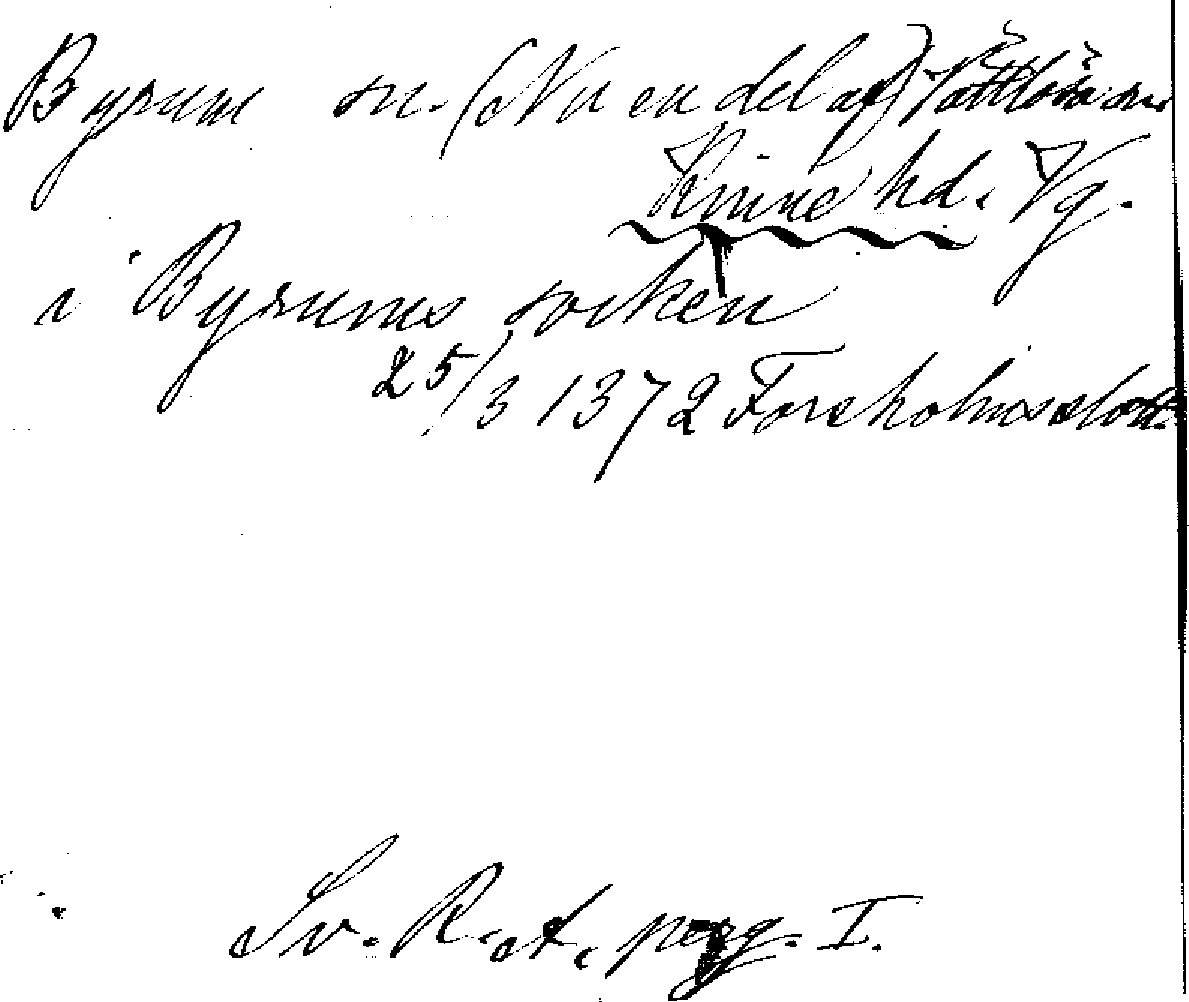 Byrum sn. (Nu en del af) Vättlösa sn.
Kinne hd. Vg.
i Byrums socken
25/3 1372 Forsholms slott.
Sv. R. A. perg. I.